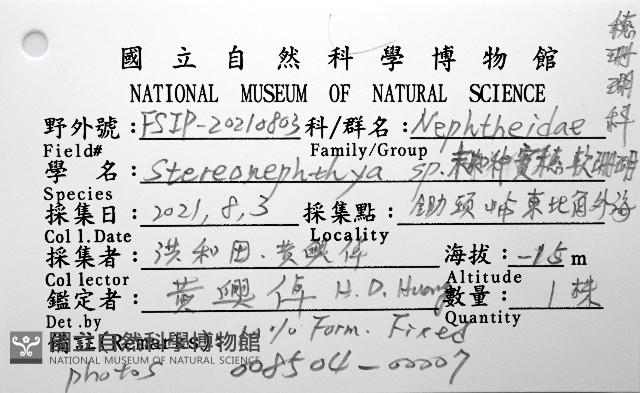 穗珊瑚科
國立自然科學博物館
NATIONAL MUSEUM OF NATURAL SCIENCE
野外號:FSIP-20210803 科/群名:Nephtheidae
Field# Family/Group
學 名:Stereonephthya sp. 未知種實穗軟珊瑚
Species
採集日:2021,8,3 採集點:鋤頭嶼東北角外海
Coll.Date Locality
採集者:洪和田.黃興倬 海拔:-15m
Collector Altitude
鑑定者:黃興倬 H.D. Huang 數量:1株
Det.by Quantity
(Remarks) 10% Form. Fixed
國立自然科學博物館
NATIONAL MUSEUM OF NATURAL SCIENCE
photos 008504-00007